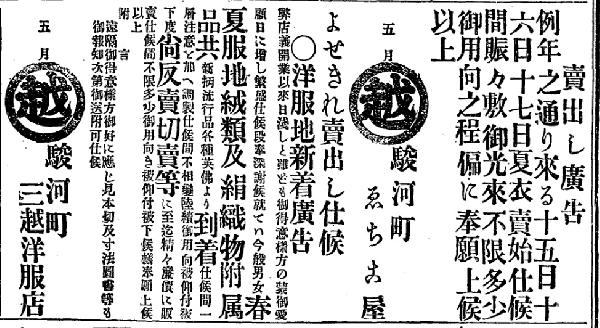 賣出し廣告
例年之通り來る十五日十
六日十七日夏衣賣始仕候
間賑々敷御光來不限多少
御用向之程偏に奉願上候
以上
五月
越
駿河町
ゑちご屋
よせきれ賣出し仕候
〇洋服地新着廣告
弊店義開業以來日淺しと雖も御得意樣方の御愛
顧日に增し繁盛仕候段奉深謝候就ては今般男女春
夏服地絨類及絹織物附属
品共新柄流行品各種英佛より到着仕候間一
層注意を加へ調製仕候間不相變陸續御用向被仰付被
下度尙反賣切賣等に至迄精々廉價に販
賣仕候間不限多少御用向き被仰付被下候樣奉願上候
以上
附言
遠隔御得意樣方御好に應じ見本切及寸法圖書等も
御報知次第御送附可仕候
五月
越
駿河町
三越洋服店